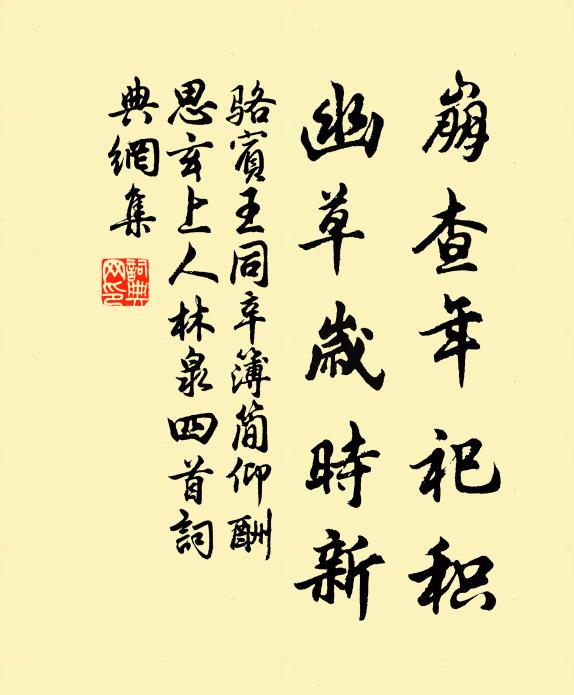 崩查年祀积
幽草歲時新
骆賓王同辛簿简仰酬
思玄上人林泉四首詞
典網集
詞典网印